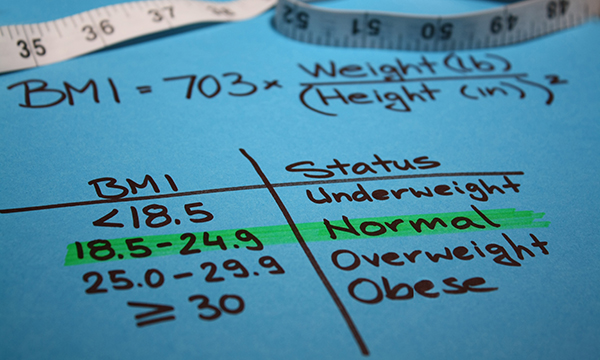 35 36 37 52 51 50 49 48
BMI = 703 × Weight (lb) / (Height (in))²
BMI Status
<18.5 Underweight
18.5-24.9 Normal
25.0-29.9 Overweight
≥ 30 Obese